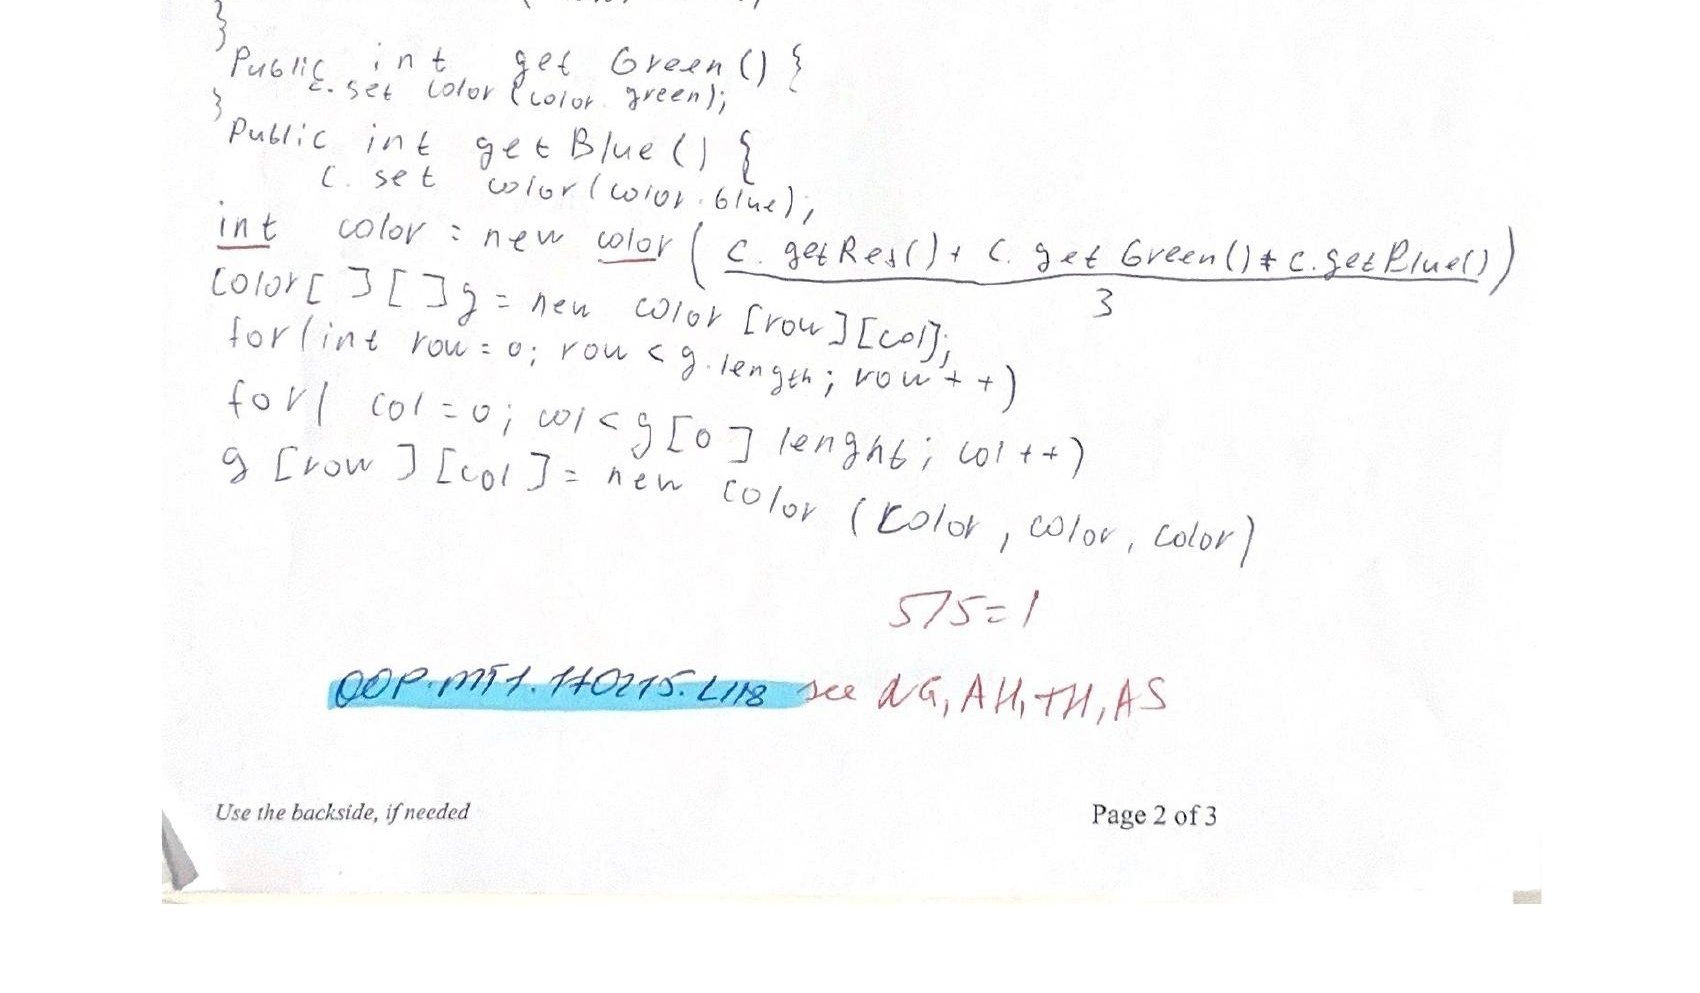 }
Public int get Green () {
c. set color (color. green);
}
Public int getBlue () {
c. set color (color. blue);
int color = new color ( c. getRes() + c. get Green() + c. getBlue() )
3
Color [ ] [ ] g = new color [row] [col];
for (int row = 0; row < g. length; row + +)
for ( col = 0; col < g [0] lenght; col ++)
g [row] [col] = new color (color, color, color)
575=1
OOP.MT1.170215.L118 see AG, AH, TH, AS
Use the backside, if needed
Page 2 of 3